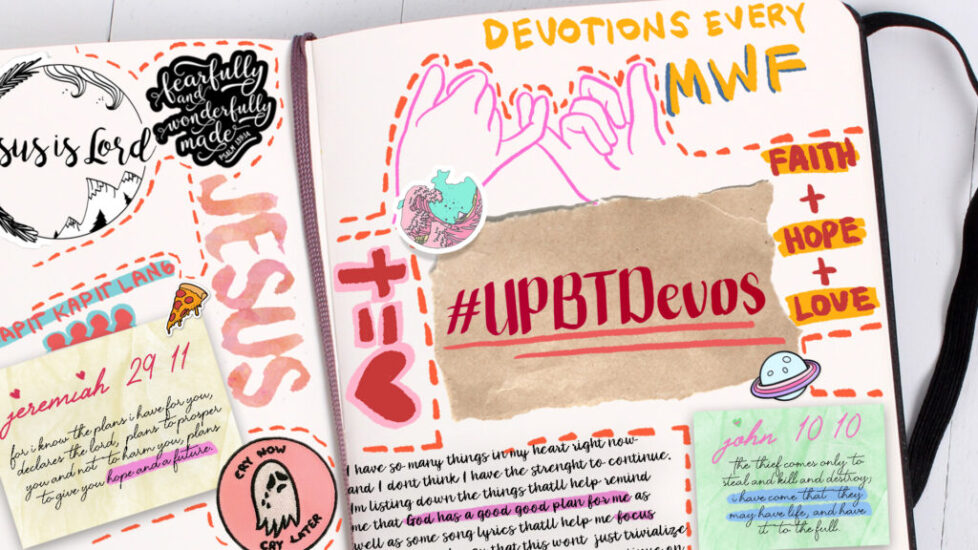 sus is Lord
fearfully
and
wonderfully
made
PSALM 139:14
JESUS
APIT KAPIT LANG
jeremiah 29 11
for i know the plans i have for you,
declares the lord, plans to prosper
you and not to harm you, plans
to give you hope and a future.
CRY NOW
CRY LATER
DEVOTIONS EVERY
MWF
FAITH
+
HOPE
+
LOVE
+
=
#UPBTDevos
I have so many things in my heart right now
and I dont think I have the strenght to continue.
I'm listing down the things thatll help remind
me that God has a good good plan for me as
well as some song lyrics thatll help me focus
that this wont just trivialize
john 10 10
the thief comes only to
steal and kill and destroy;
i have come that they
may have life, and have
it to the full.